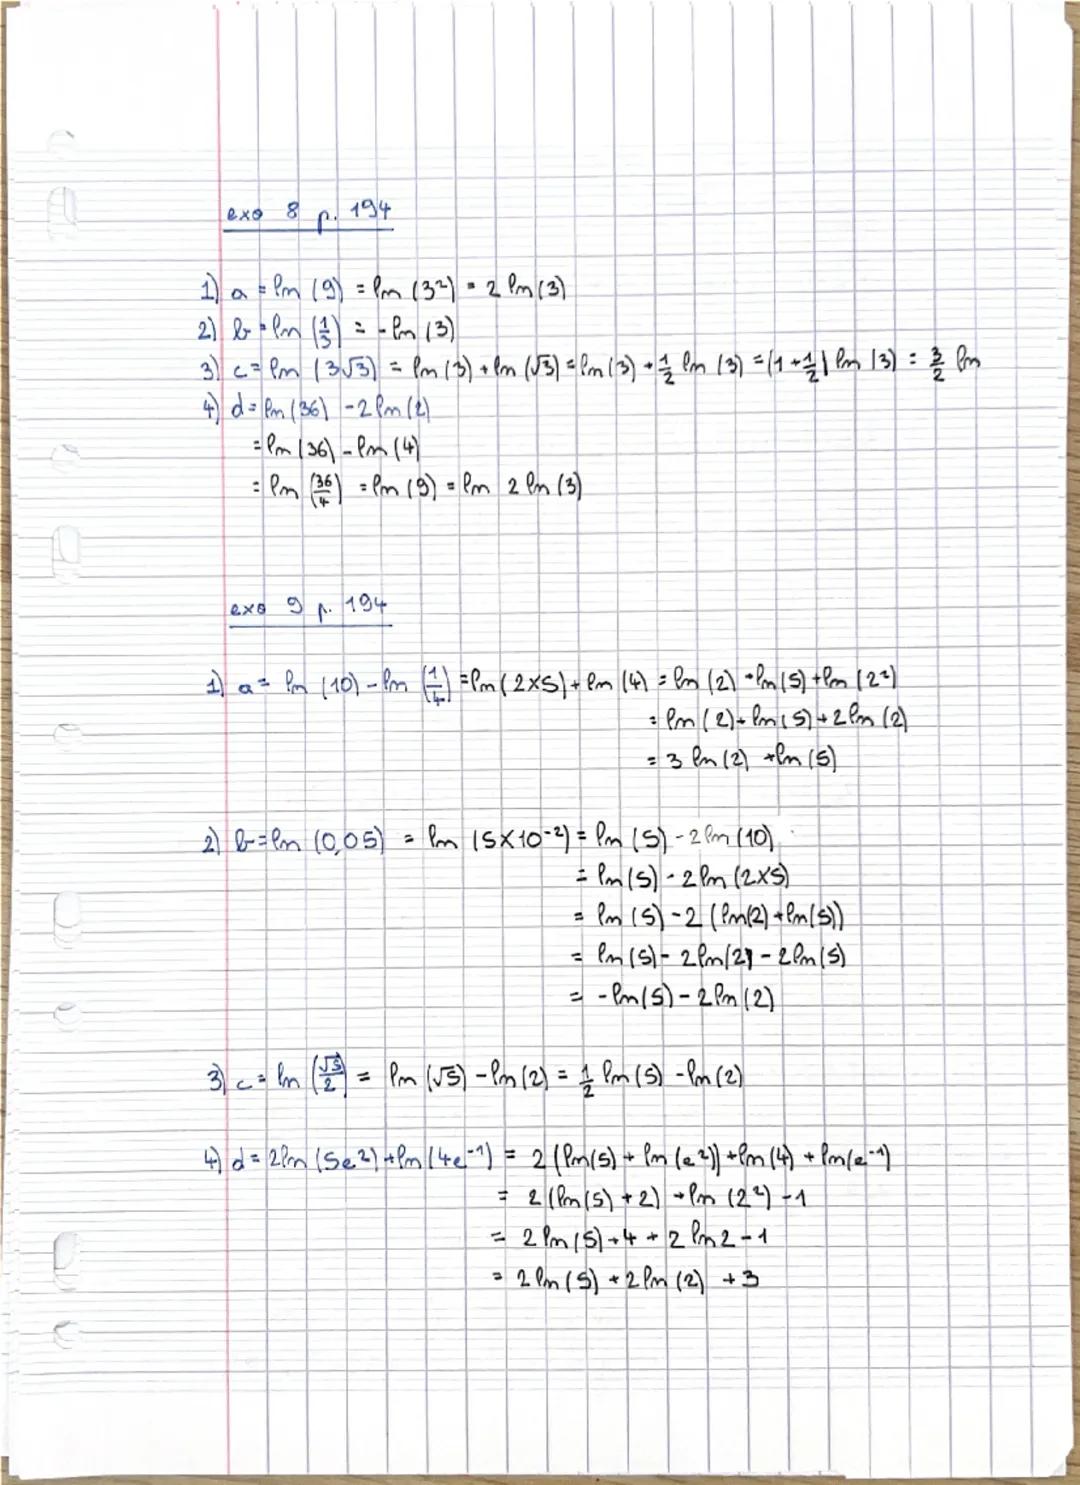 exo 8 p. 194
1) a = ln (9) = ln (3²) = 2 ln (3)
2) b = ln (1/3) = - ln (3)
3) c = ln (3√3) = ln (3) + ln (√3) = ln (3) + 1/2 ln (3) = (1 + 1/2) ln (3) = 3/2 ln
4) d = ln (36) - 2 ln (2)
= ln (36) - ln (4)
= ln (36/4) = ln (9) = ln 2 ln (3)
exo 9 p. 194
1) a = ln (10) - ln (1/4) = ln (2×5) + ln (4) = ln (2) + ln (5) + ln (2²)
= ln (2) + ln (5) + 2 ln (2)
= 3 ln (2) + ln (5)
2) b = ln (0,05) = ln (5×10⁻²) = ln (5) - 2 ln (10)
= ln (5) - 2 ln (2×5)
= ln (5) - 2 (ln(2) + ln(5))
= ln (5) - 2 ln (2) - 2 ln (5)
= - ln (5) - 2 ln (2)
3) c = ln (√5/2) = ln (√5) - ln (2) = 1/2 ln (5) - ln (2)
4) d = 2 ln (5e²) + ln (4e⁻¹) = 2 (ln(5) + ln (e²)) + ln (4) + ln (e⁻¹)
= 2 (ln (5) + 2) + ln (2²) - 1
= 2 ln (5) + 4 + 2 ln 2 - 1
= 2 ln (5) + 2 ln (2) + 3